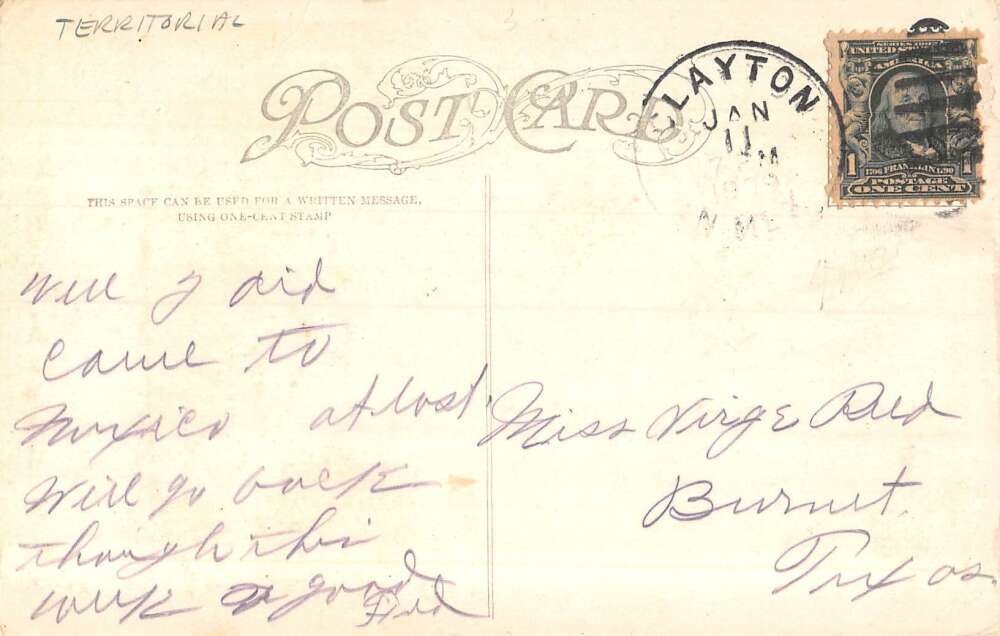 TERRITORIAL
POST CARD
CLAYTON
JAN
11
N. ME
SERIES 1902
UNITED STATES OF
AMERICA
1 1
1706 FRANKLIN 1790
POSTAGE
ONE CENT
THIS SPACE CAN BE USED FOR A WRITTEN MESSAGE,
USING ONE-CENT STAMP
Well I did
come to
Mexico at last.
Will go back
though this
week good
Miss Virge Reed
Burnet
Texas